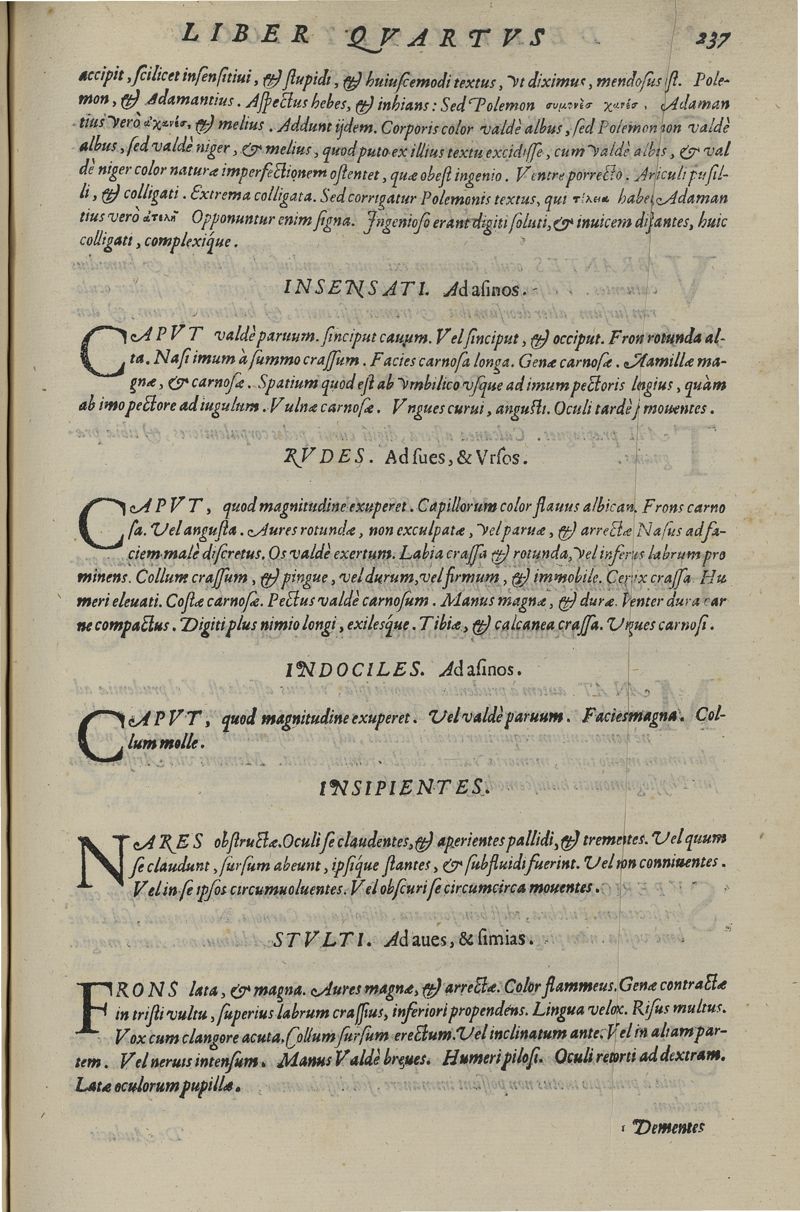 LIBER QVARTVS 237
accipit, scilicet insensitiui, & stupidi, & huiuscemodi textus, vt diximus, mendosus st. Pole-
mon, & Adamantius. Aspectus hebes, & inhians: Sed Polemon Adaman
tius verò & melius. Addunt ijdem. Corporis color valdè albus, sed Polemon non valdè
albus, sed valdè niger, & melius, quod puto ex illius textu excidisse, cum valdè albis, & val
dè niger color naturæ imperfectionem ostentet, quæ obest ingenio. Ventre porrecto. Ariculi pusil-
li, & colligati. Extrema colligata. Sed corrigatur Polemonis textus, qui habet Adaman
tius verò Opponuntur enim signa. Ingenioso erant digiti soluti, & inuicem distantes, huic
colligati, complexiq́ue.
INSENSATI. Ad asinos.
CAPVT valdè paruum. sinciput cauum. Vel sinciput, & occiput. Frons rotunda al-
ta. Nasi imum à summo crassum. Facies carnosa longa. Genæ carnosæ. Mamillæ ma-
gnæ, & carnosæ. Spatium quod est ab vmbilico vsque ad imum pectoris lngius, quàm
ab imo pectore ad iugulum. Vulnæ carnosæ. Vngues curui, angusti. Oculi tardè mouentes.
RVDES. Ad sues, & Vrsos.
CAPVT, quod magnitudine exuperet. Capillorum color flauus albican. Frons carno
sa. Vel angusta. Aures rotundæ, non exculpatæ, vel paruæ, & arrectæ Nasus ad fa-
ciem malè discretus. Os valdè exertum. Labia crassa & rotunda, vel inferus labrum pro
minens. Collum crassum, & pingue, vel durum, vel firmum, & immobile. Ceruix crassa Hu
meri eleuati. Costæ carnosæ. Pectus valdè carnosum. Manus magnæ, & duræ. Venter dura car
ne compactus. Digiti plus nimio longi, exilesq́ue. Tibiæ, & calcanea crassa. Vngues carnosi.
INDOCILES. Ad asinos.
CAPVT, quod magnitudine exuperet. Vel valdè paruum. Facies magna. Col-
lum molle.
INSIPIENTES.
NARES obstructæ. Oculi se claudentes, & aperientes pallidi, & trementes. Vel quum
se claudunt, sursum abeunt, ipsiq́ue stantes, & subfluidi fuerint. Vel non conniuentes.
Vel in se ipsos circumuoluentes. Vel obscuri se circumcirca mouentes.
STVLTI. Ad aues, & simias.
FRONS lata, & magna. Aures magnæ, & arrectæ. Color flammeus. Genæ contractæ
in tristi vultu, superius labrum crassius, inferiori propendens. Lingua velox. Risus multus.
Vox cum clangore acuta. Collum sursum erectum. Vel inclinatum ante. Vel in aliam par-
tem. Vel neruis intensum. Manus Valdè breues. Humeri pilosi. Oculi retorti ad dextram.
Latæ oculorum pupillæ.
Dementes